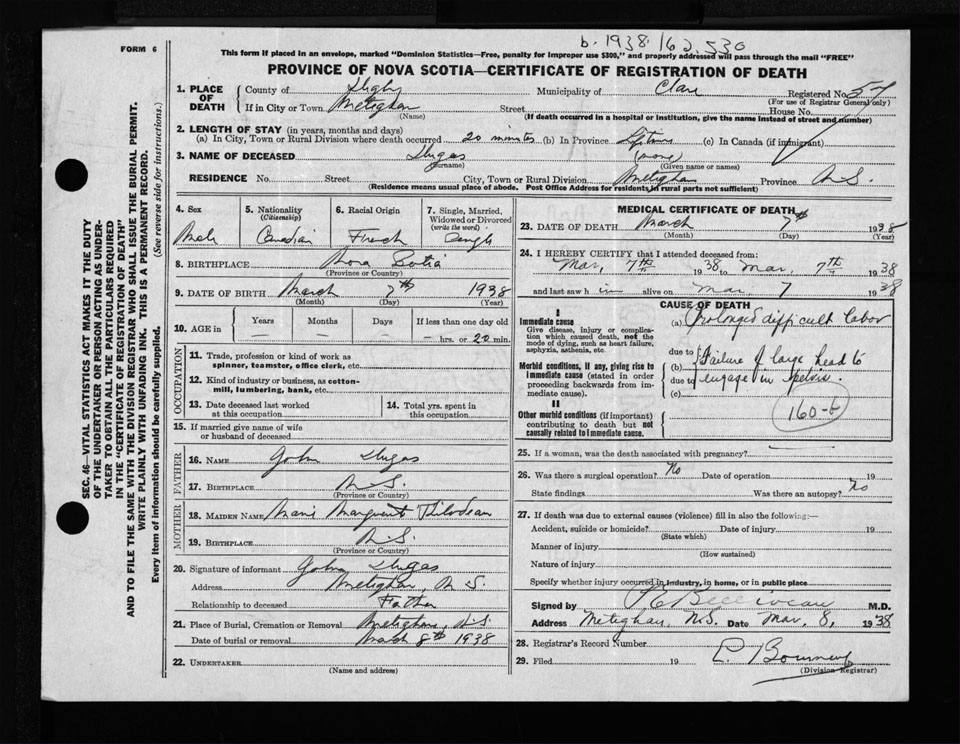 b. 1938 162530
FORM 6
This form if placed in an envelope, marked "Dominion Statistics—Free, penalty for improper use $300," and properly addressed will pass through the mail "FREE"
PROVINCE OF NOVA SCOTIA—CERTIFICATE OF REGISTRATION OF DEATH
1. PLACE OF DEATH County of Digby Municipality of Clare Registered No. 57
(For use of Registrar General only)
If in City or Town Meteghan Street House No.
(Name) (If death occurred in a hospital or institution, give the name instead of street and number)
2. LENGTH OF STAY (in years, months and days)
(a) In City, Town or Rural Division where death occurred 20 minutes (b) In Province Lifetime (c) In Canada (if immigrant)
3. NAME OF DECEASED Dugas (none)
(Surname) (Given name or names)
RESIDENCE No. Street City, Town or Rural Division Meteghan Province N.S.
(Residence means usual place of abode. Post Office Address for residents in rural parts not sufficient)
4. Sex 5. Nationality (Citizenship) 6. Racial Origin 7. Single, Married, Widowed or Divorced (write the word)
Male Canadian French Single
8. BIRTHPLACE Nova Scotia
(Province or Country)
9. DATE OF BIRTH March 7th 1938
(Month) (Day) (Year)
10. AGE in Years Months Days If less than one day old
— — — — hrs. or 20 min.
OCCUPATION
11. Trade, profession or kind of work as spinner, teamster, office clerk, etc.
12. Kind of industry or business, as cotton-mill, lumbering, bank, etc.
13. Date deceased last worked at this occupation 14. Total yrs. spent in this occupation
15. If married give name of wife or husband of deceased
FATHER
16. NAME John Dugas
17. BIRTHPLACE N.S.
(Province or Country)
MOTHER
18. MAIDEN NAME Marie Marguerit Thibodeau
19. BIRTHPLACE N.S.
(Province or Country)
20. Signature of informant John Dugas
Address Meteghan, N.S.
Relationship to deceased Father
21. Place of Burial, Cremation or Removal Meteghan, N.S.
Date of burial or removal March 8th 1938
22. UNDERTAKER
(Name and address)
MEDICAL CERTIFICATE OF DEATH
23. DATE OF DEATH March 7th 1938
(Month) (Day) (Year)
24. I HEREBY CERTIFY that I attended deceased from:
Mar, 7th 1938 to Mar, 7th 1938
and last saw h im alive on Mar, 7 1938
CAUSE OF DEATH
I
Immediate cause
Give disease, injury or complication which caused death, not the mode of dying, such as heart failure, asphyxia, asthenia, etc.
(a) Prolonged difficult labor
due to
Morbid conditions, if any, giving rise to immediate cause (stated in order proceeding backwards from immediate cause).
(b) Failure of large head to
due to engage in pelvis.
(c)
II
Other morbid conditions (if important) contributing to death but not causally related to immediate cause.
160-b
25. If a woman, was the death associated with pregnancy?
26. Was there a surgical operation? No Date of operation 19
State findings Was there an autopsy? No
27. If death was due to external causes (violence) fill in also the following:—
Accident, suicide or homicide? Date of injury 19
(State which)
Manner of injury
(How sustained)
Nature of injury
Specify whether injury occurred in industry, in home, or in public place
Signed by Belliveau M.D.
Address Meteghan, N.S. Date Mar, 8, 1938
28. Registrar's Record Number
29. Filed 19
(Division Registrar)
SEC. 46—VITAL STATISTICS ACT MAKES IT THE DUTY
OF THE UNDERTAKER OR PERSON ACTING AS UNDER-
TAKER TO OBTAIN ALL THE PARTICULARS REQUIRED
IN THE "CERTIFICATE OF REGISTRATION OF DEATH"
AND TO FILE THE SAME WITH THE DIVISION REGISTRAR WHO SHALL ISSUE THE BURIAL PERMIT.
WRITE PLAINLY WITH UNFADING INK. THIS IS A PERMANENT RECORD.
Every item of information should be carefully supplied. (See reverse side for instructions.)